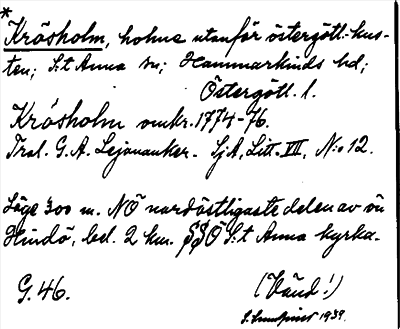 *
Kråsholm, holme utanför östergötl.-kus-
ten; S:t Anna sn; Hammarkinds hd;
Östergötl. l.
Kråsholm omkr. 1774-76.
Tral. G. A. Lejonanker. SjA, Litt. III, N:o 12.
Läge 300 m. NÖ nordöstligaste delen av ön
Hindö, bel. 2 km. SSÖ S:t Anna kyrka.
G. 46.
(Vänd!)
1939.